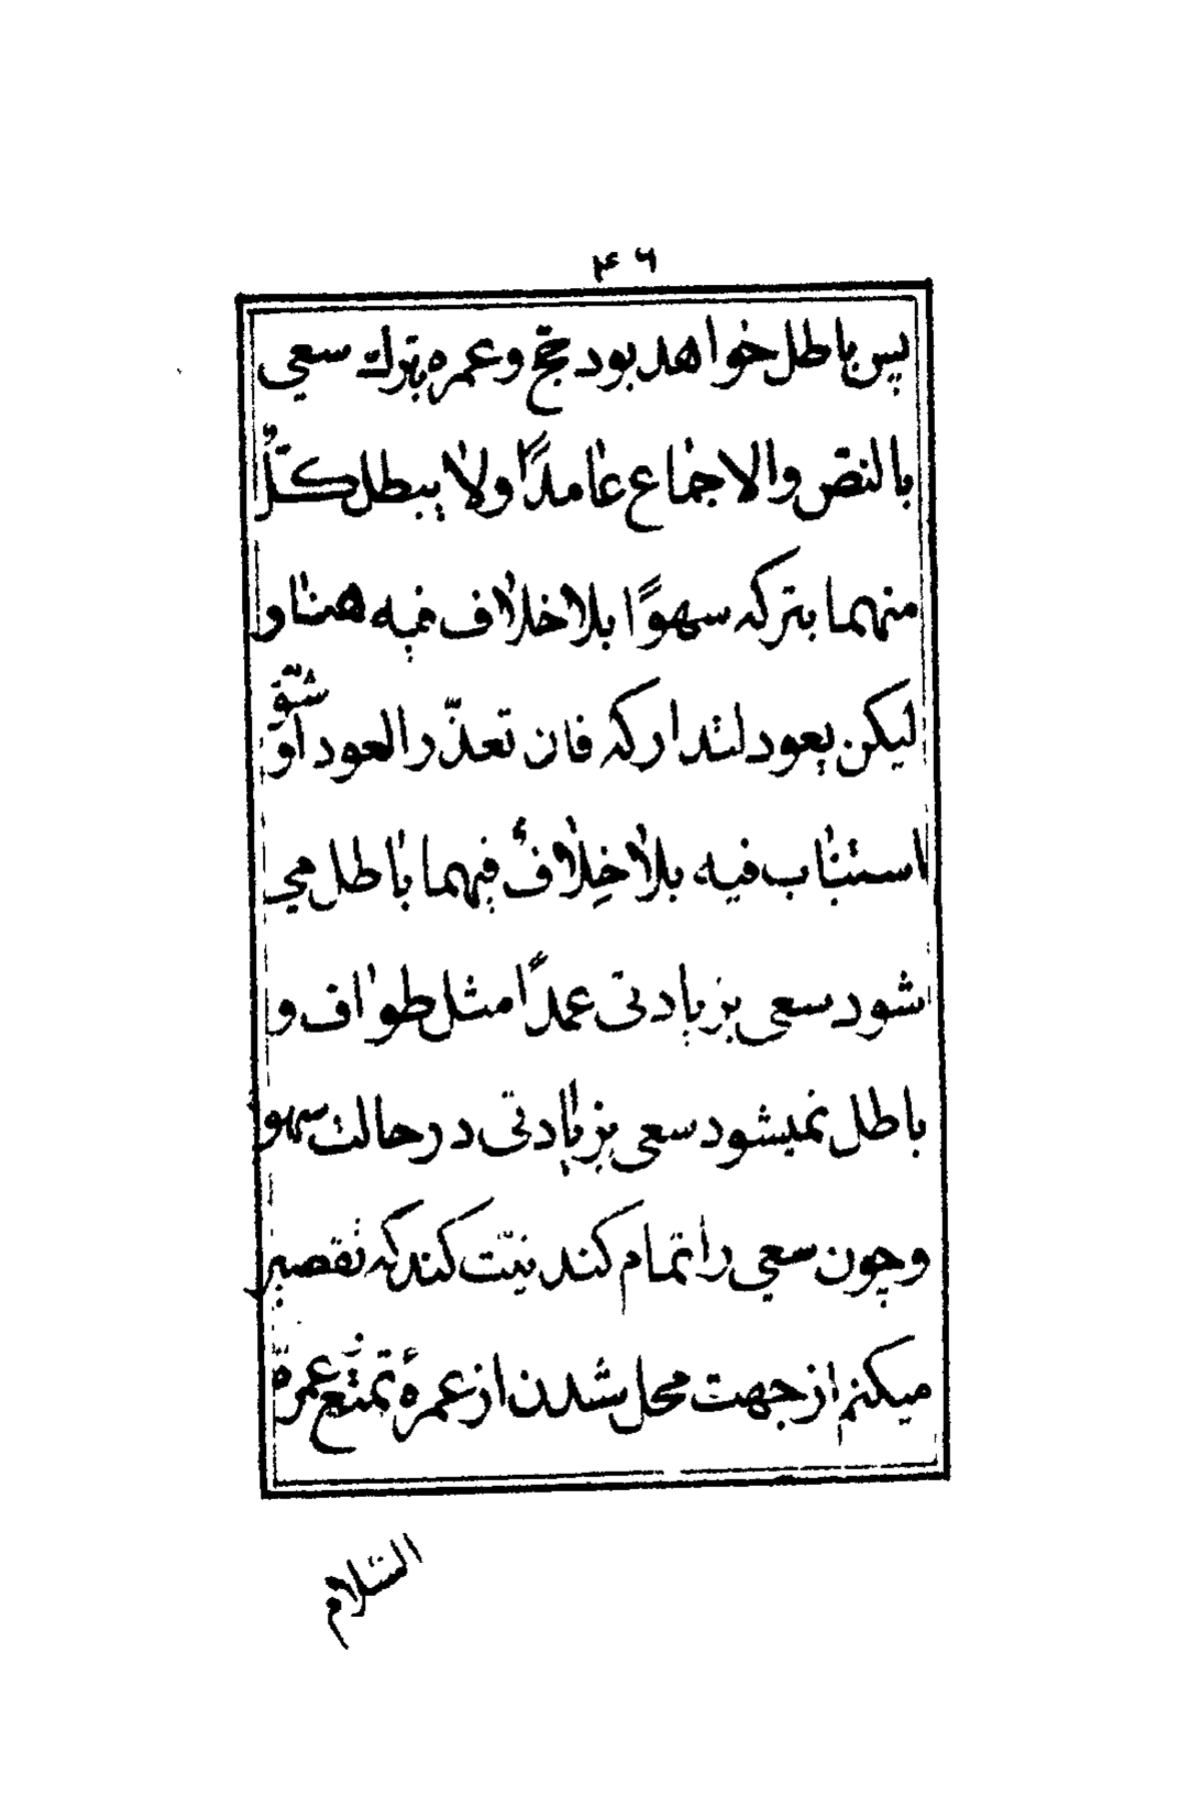 ۴۶
پس باطل خواهد بود حج و عمره بترك سعی
بالنص والاجماع عامدًا ولا یبطل كلٌّ
منهما بتركه سهوًا بلا خلاف فیه هنا و
لیكن یعود لتداركه فان تعذّر العود او شقّ
استناب فیه بلا خِلافٌ فیهما باطل می
شود سعی بزیادتی عمدًا مثل طواف و
باطل نمیشود سعی بزیادتی در حالت سهو
و چون سعی را تمام كند نیّت كند كه تقصیر
میكنم از جهت محل شدن از عمرهٔ تمتّع عمرهٔ
السّلام